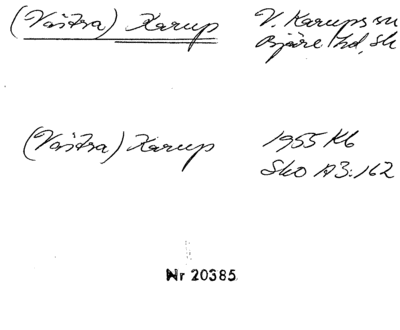 (Västra) Karup
V. Karups sn
Bjäre hd, Sk
(Västra) Karup
1955 Kb
Sko A3:162
Nr 20385